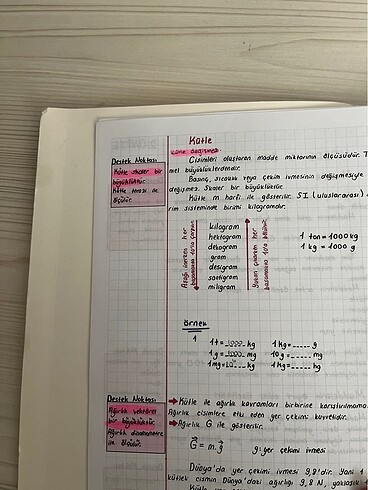 Kütle
Kütle değişmez.
Destek Noktası
Kütle skaler bir
büyüklüktür.
Kütle terazi ile
ölçülür.
Cisimleri oluşturan madde miktarının ölçüsüdür. T
mel büyüklüklerdendir.
Basınç, sıcaklık veya çekim ivmesinin değişmesiyle
değişmez. Skaler bir büyüklüktür.
Kütle m harfi ile gösterilir. SI (uluslararası)
rim sisteminde birimi kilogramdır.
Aşağı inerken her
basamakta 10'la çarpılır
kilogram
hektogram
dekagram
gram
desigram
santigram
miligram
Yukarı çıkarken her
1 ton = 1000 kg
1 kg = 1000 g
Örnek
1
1t = 1000 kg
1g = 1000 mg
1mg =
kg
1kg = g
10g = mg
1kg = hg
Destek Noktası
Ağırlık vektörel
bir büyüklüktür.
Ağırlık dinamometre
ile ölçülür.
Kütle ile ağırlık kavramları birbirine karıştırılmama
Ağırlık cisimlere etki eden yer çekimi kuvvetidir.
Ağırlık G ile gösterilir.
G = m.g
g: yer çekimi ivmesi
Dünya'da yer çekimi ivmesi 9,8'dir. Yani 1
kütleli cismin Dünya'daki ağırlığı 9,8 N, yaklaşık